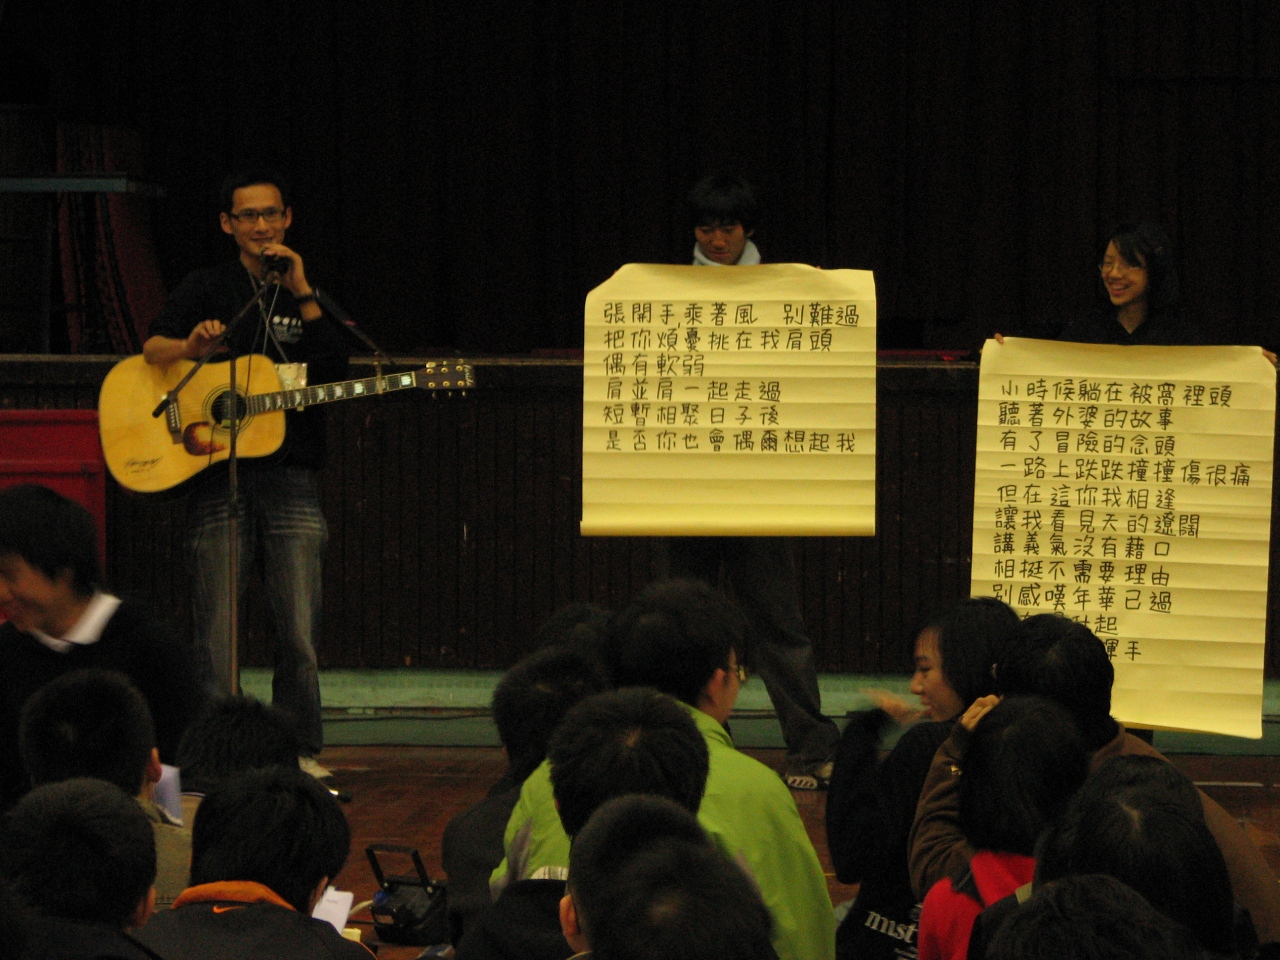 張開手,乘著風 別難過
把你煩憂挑在我肩頭
偶有軟弱
肩並肩一起走過
短暫相聚日子後
是否你也會偶爾想起我
小時候躺在被窩裡頭
聽著外婆的故事
有了冒險的念頭
一路上跌跌撞撞傷很痛
但在這你我相逢
讓我看見天的遼闊
講義氣沒有藉口
相挺不需要理由
別感嘆年華已過
起
揮手